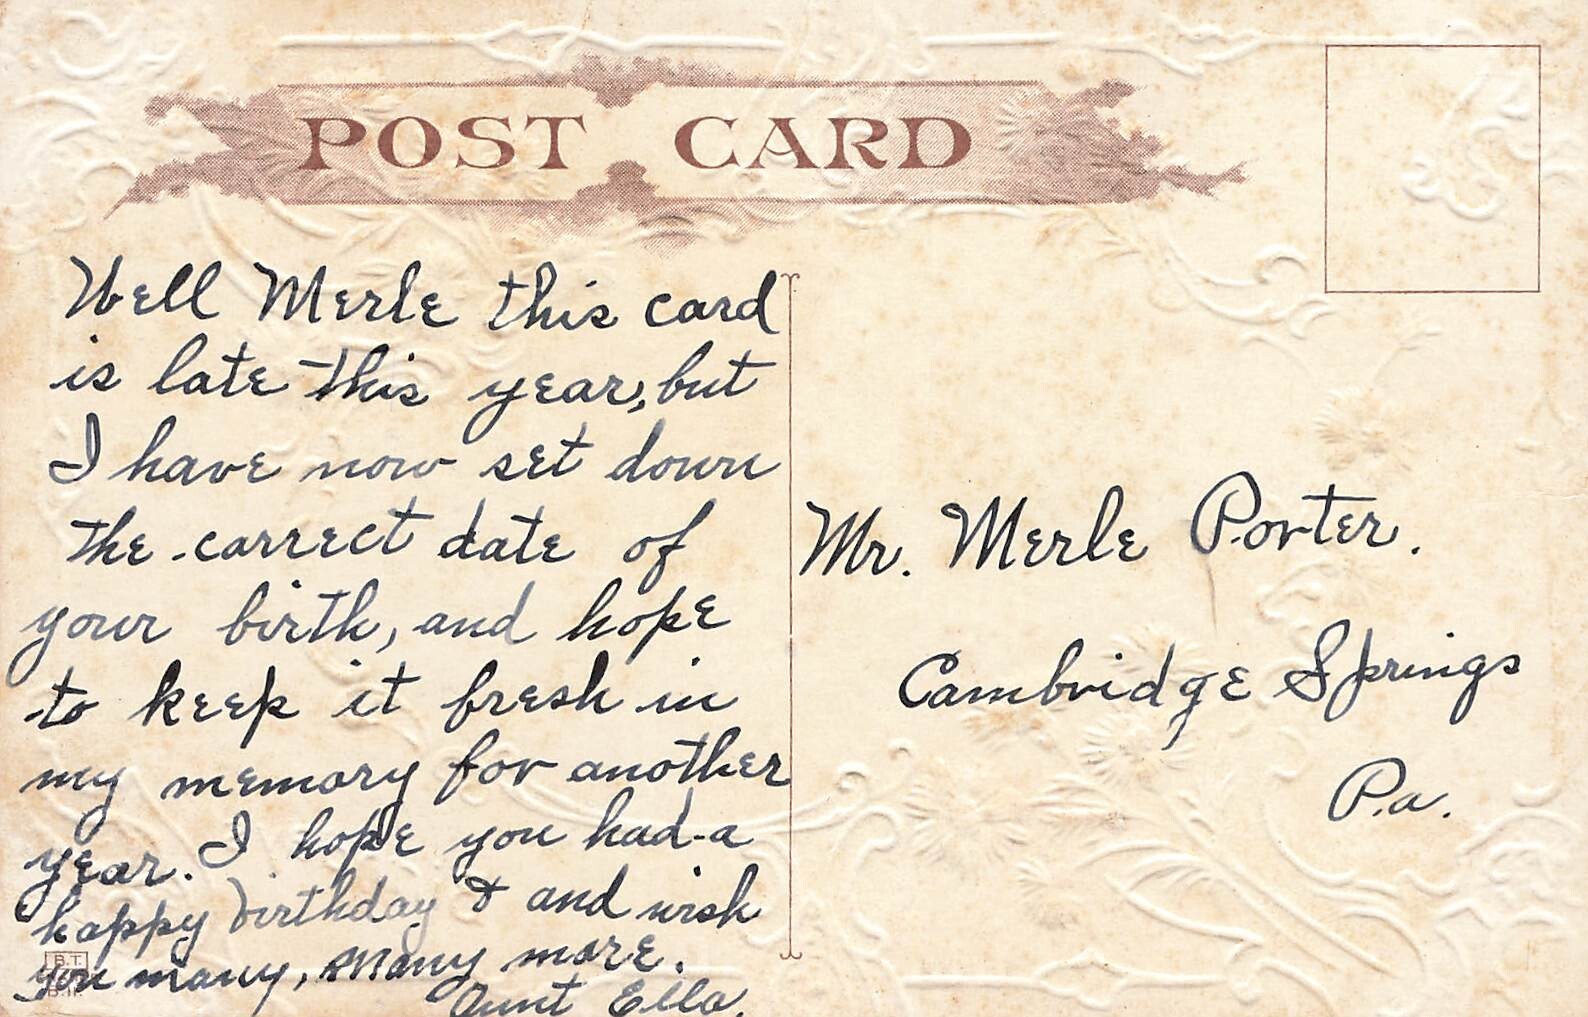 POST CARD
Well Merle this card
is late this year, but
I have now set down
the correct date of
your birth, and hope
to keep it fresh in
my memory for another
year. I hope you had a
happy birthday & and wish
you many, many more.
Aunt Ella.
Mr. Merle Porter.
Cambridge Springs
Pa.
B.T.